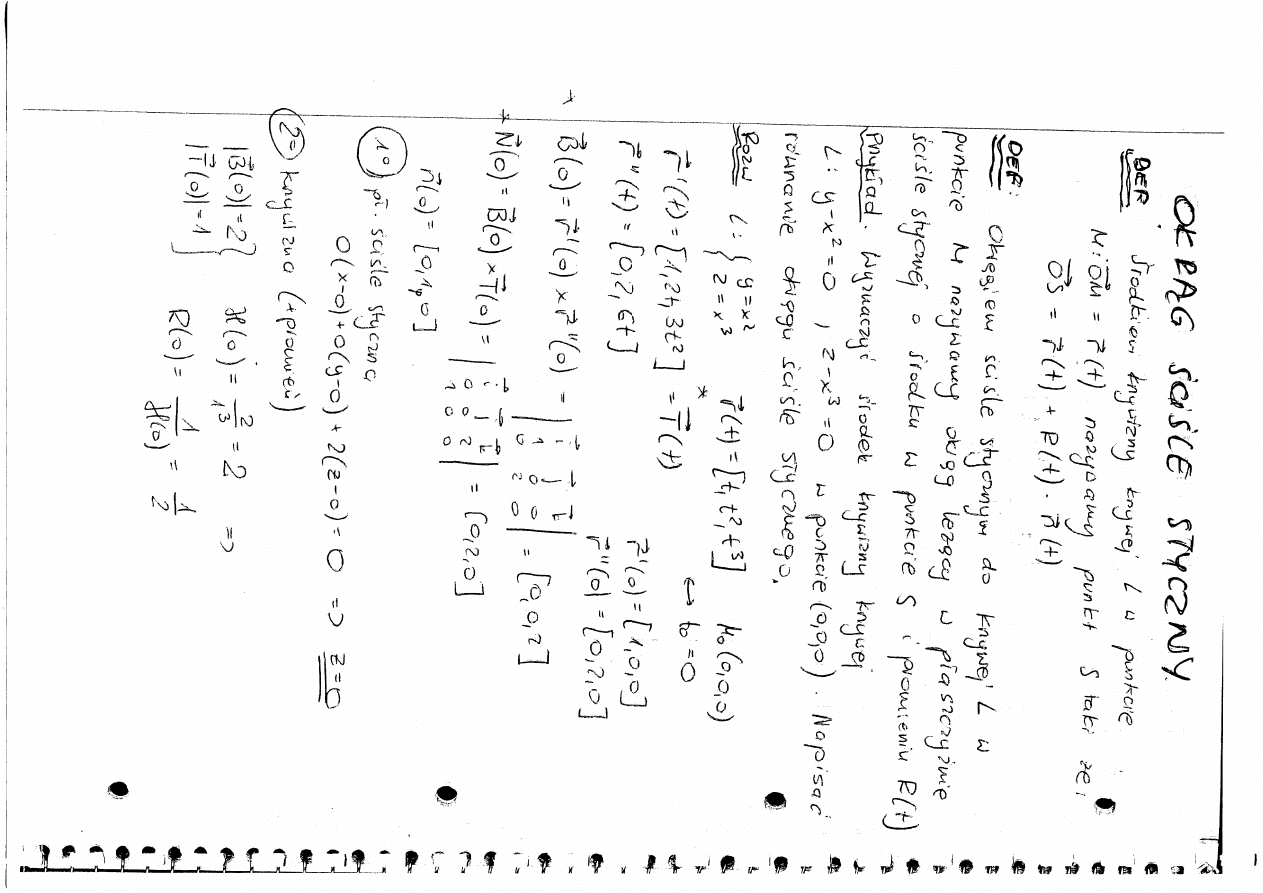 OKRĄG ŚCIŚLE STYCZNY
DEF Środkiem krzywizny krzywej L w punkcie
M: OM = r(t) nazywamy punkt S taki że:
OS = r(t) + R(t) · n(t)
DEF: Okręgiem ściśle stycznym do krzywej L w
punkcie M nazywamy okrąg leżący w płaszczyźnie
ściśle stycznej o środku w punkcie S i promieniu R(t)
Przykład. Wyznaczyć środek krzywizny krzywej
L: y-x²=0, z-x³=0 w punkcie (0,0,0). Napisać
równanie okręgu ściśle stycznego.
Rozw L: { y=x² z=x³ r(t) = [t, t², t³] M₀(0,0,0)
↔ t₀=0
r'(t) = [1, 2t, 3t²] = T(t) r'(0) = [1,0,0]
r''(t) = [0, 2, 6t] r''(0) = [0,2,0]
B(0) = r'(0) × r''(0) = | i j k 1 0 0 0 2 0 | = [0,0,2]
* N(0) = B(0) × T(0) = | i j k 0 0 2 1 0 0 | = [0,2,0]
n(0) = [0,1,0]
1° pł. ściśle styczna
0(x-0)+0(y-0)+2(z-0)=0 => z=0
2° krzywizna (+promień)
|B(0)|=2 |T(0)|=1 } ϰ(0) = 2/1³ = 2 =>
R(0) = 1/ϰ(0) = 1/2